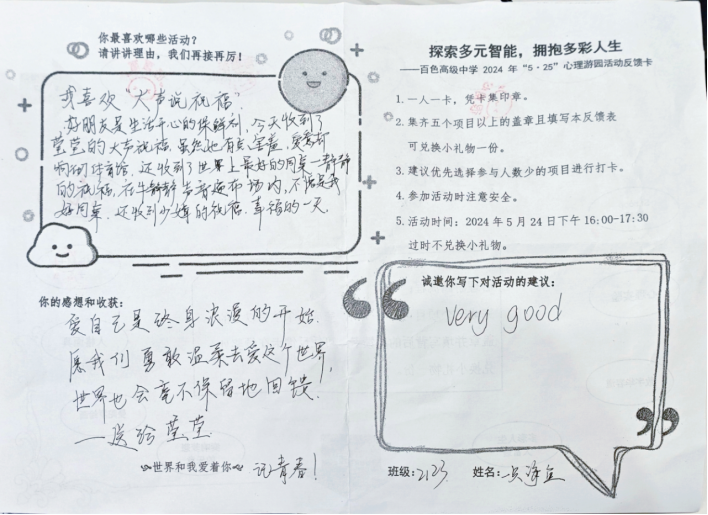 你最喜欢哪些活动?
请讲讲理由,我们再接再厉!
我喜欢“大声说祝福”
好朋友是生活开心的保鲜剂,今天收到了
莹莹的大声祝福,虽然她有点害羞,
响彻体育馆,还收到了世界上最好的同桌一静静
的祝福,在牛静静声音遍布场内,不愧是我
好同桌,还收到少婵的祝福.幸福的一天.
你的感想和收获:
爱自己是终身浪漫的开始.
愿我们勇敢温柔去爱这个世界,
世界也会毫不保留地回馈.
—送给莹莹
世界和我爱着你
记青春!
探索多元智能,拥抱多彩人生
——百色高级中学 2024 年“5·25”心理游园活动反馈卡
1. 一人一卡,凭卡集印章。
2. 集齐五个项目以上的盖章且填写本反馈表
可兑换小礼物一份。
3. 建议优先选择参与人数少的项目进行打卡。
4. 参加活动时注意安全。
5. 活动时间:2024 年 5 月 24 日下午 16:00-17:30
过时不兑换小礼物。
诚邀你写下对活动的建议:
very good
班级:2123 姓名: